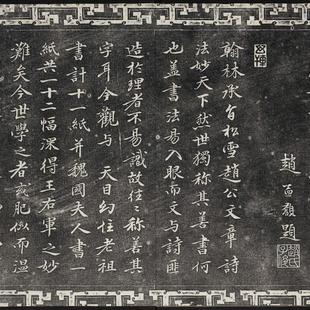 趙孟頫題
翰林承旨松雪趙公文章詩
法妙天下然世獨稱其善書何
也蓋書法易入眼而文與詩匪
造於理者不易識故往往稱善其
字耳余觀與 天目幻住老祖
書計十一紙并魏國夫人書一
紙共十二幅深得王右軍之妙
難矣今世學之者或肥而温